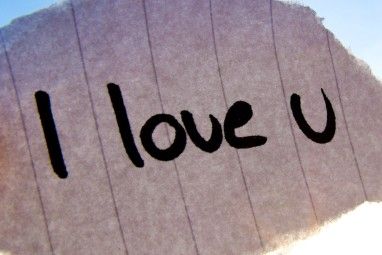 I love u